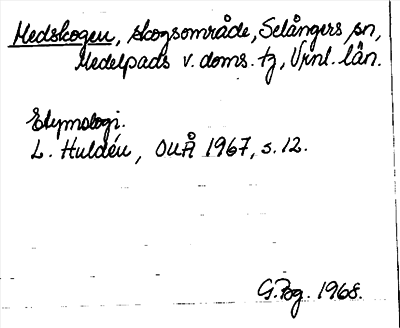 Medskogen, skogsområde, Selångers sn,
Medelpads v. doms. tg, Vrnl. län.
Etymologi.
L. Huldén, OUÅ 1967, s. 12.
G. Bog. 1968.